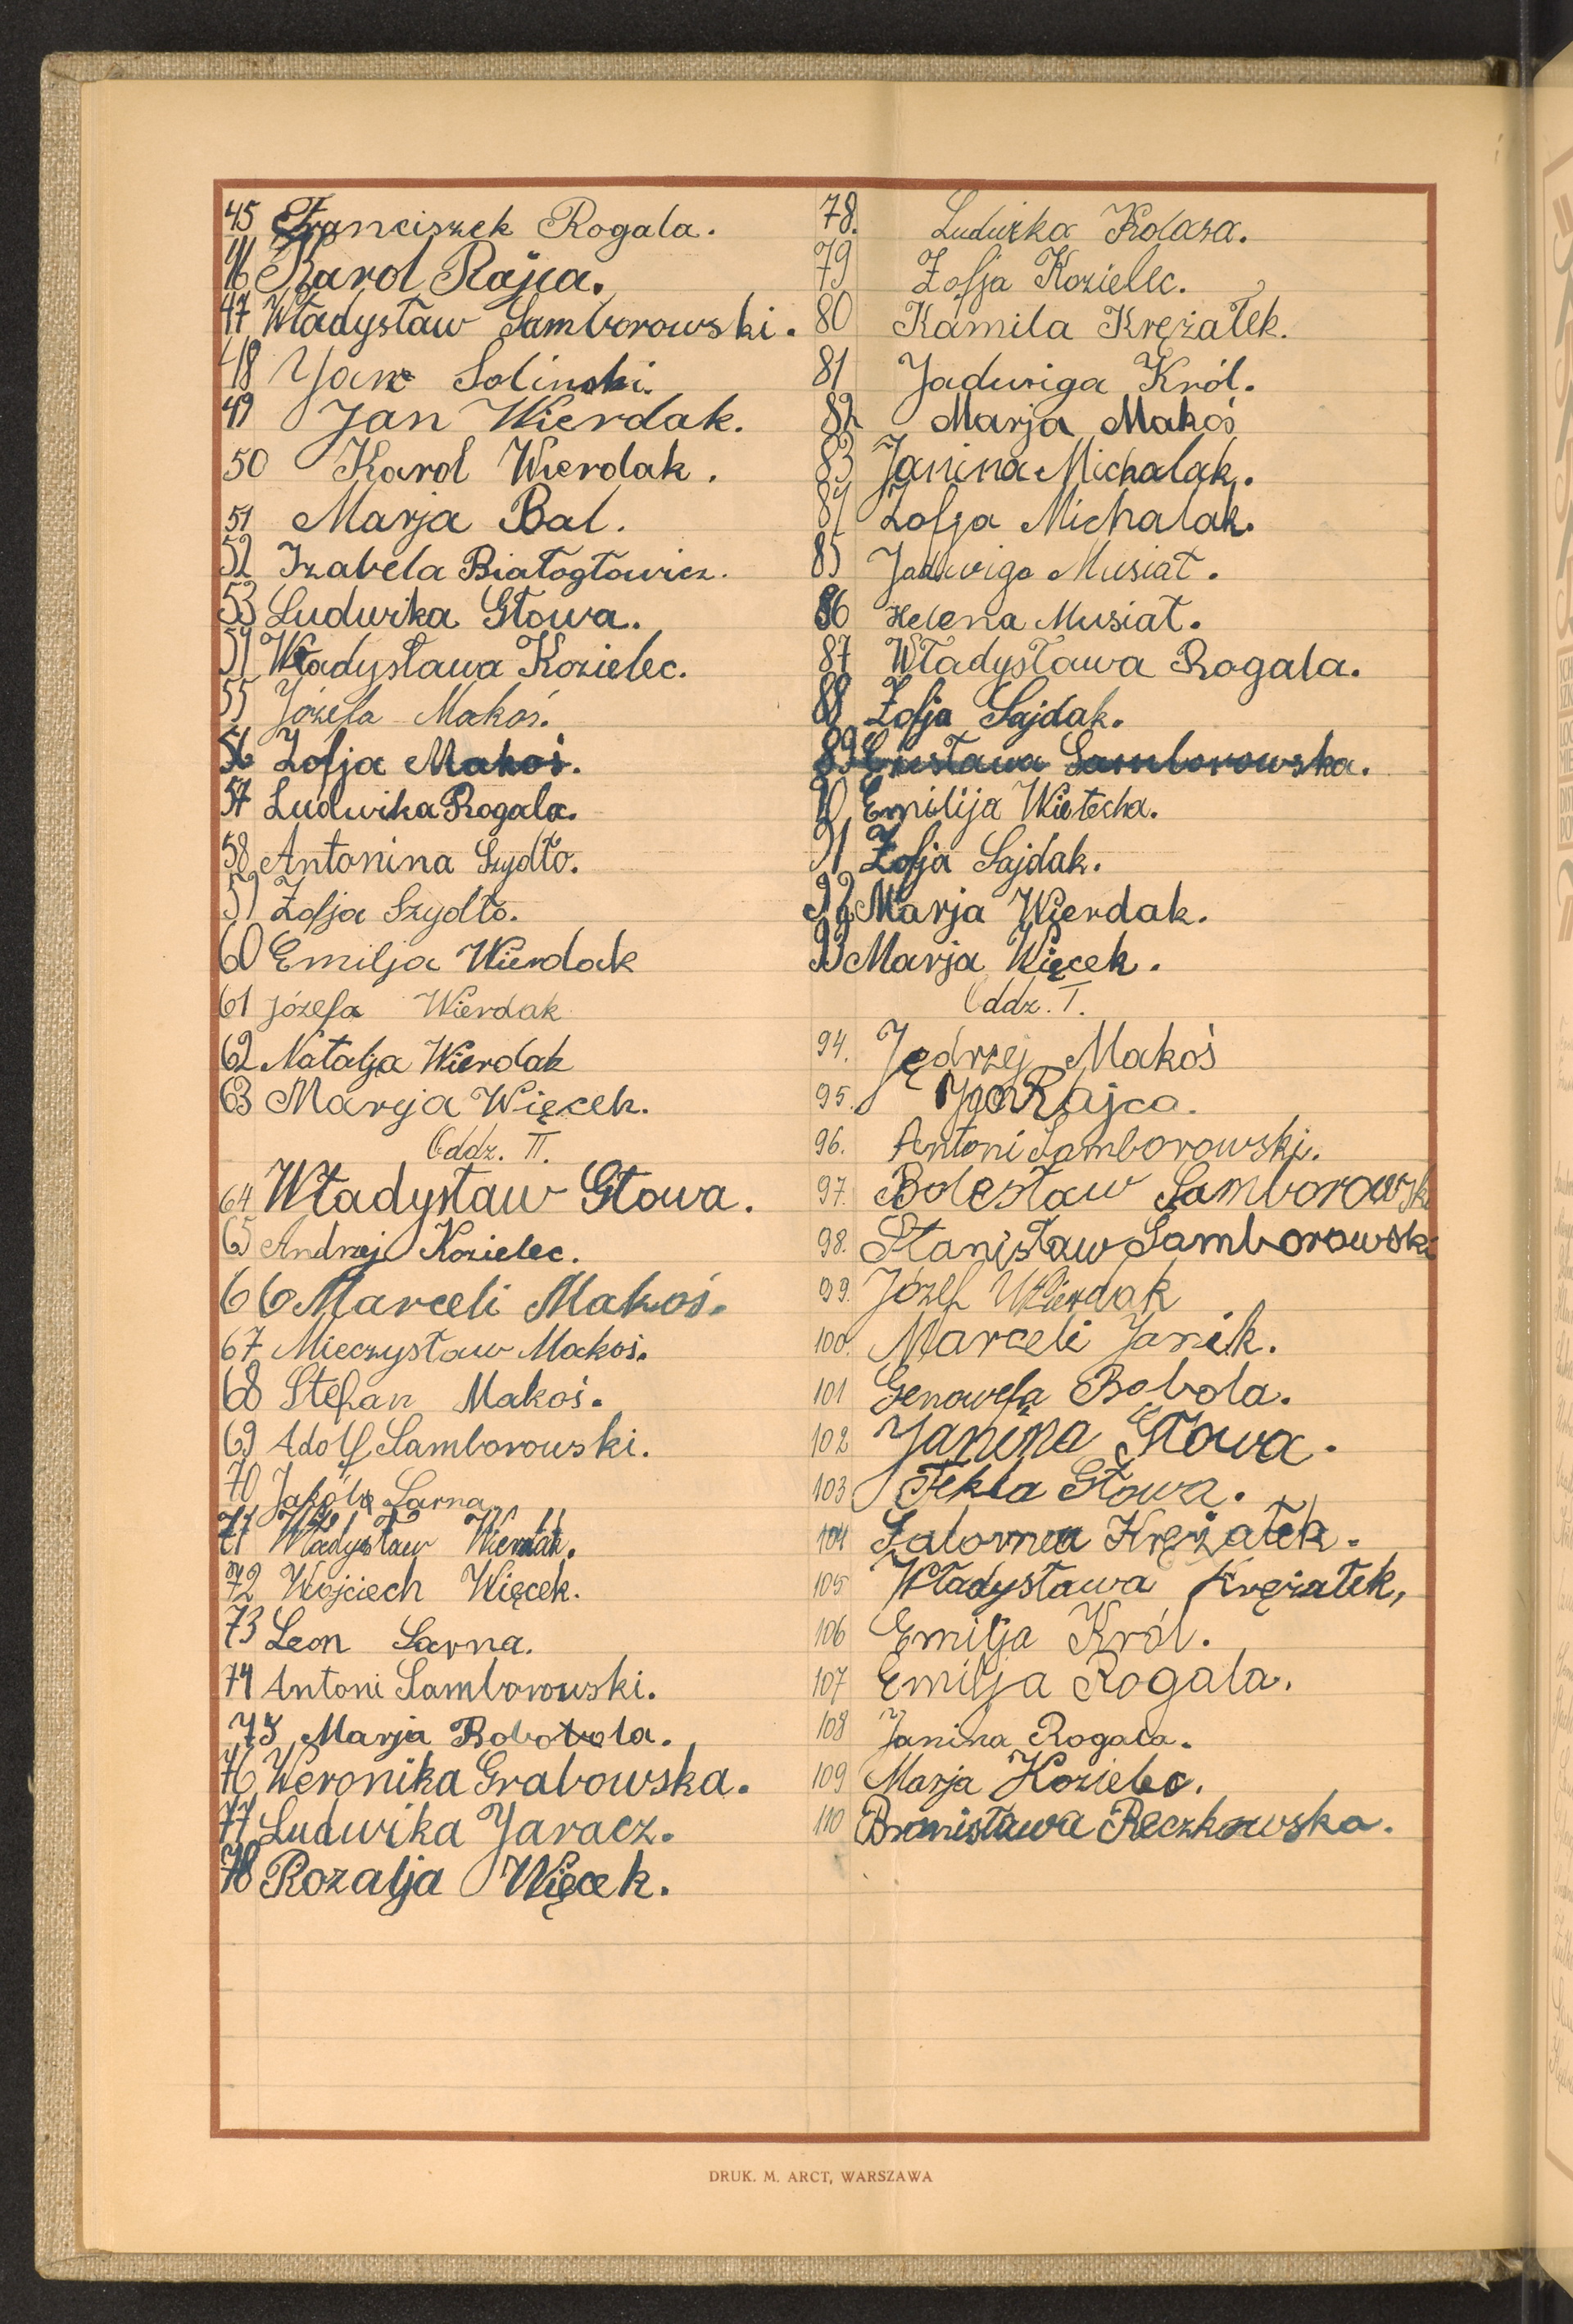 45 Franciszek Rogala.
46 Karol Rajca.
47 Władysław Samborowski.
48 Jan Solinski.
49 Jan Wierdak.
50 Karol Wierdak.
51 Marja Bal.
52 Izabela Białogłowicz.
53 Ludwika Głowa.
54 Władysława Kozielec.
55 Józefa Makoś.
56 Zofja Makoś.
57 Ludwika Rogala.
58 Antonina Szydło.
59 Zofja Szydło.
60 Emilja Wierdak
61 Józefa Wierdak
62 Natalja Wierdak
63 Marja Więcek.
Oddz. II.
64 Władysław Głowa.
65 Andrzej Kozielec.
66 Marceli Makoś.
67 Mieczysław Makoś.
68 Stefan Makoś.
69 Adolf Samborowski.
70 Jakób Sarna
71 Władysław Wierdak.
72 Wojciech Więcek.
73 Leon Sarna.
74 Antoni Samborowski.
75 Marja Bobola.
76 Weronika Grabowska.
77 Ludwika Jaracz.
78 Rozalja Więcek.
78. Ludwika Kolasa.
79 Zofja Kozielec.
80 Kamila Krężałek.
81 Jadwiga Król.
82 Marja Makoś
83 Janina Michalak.
84 Zofja Michalak.
85 Jadwiga Musiał.
86 Helena Musiał.
87 Władysława Rogala.
88 Zofja Sajdak.
89 Samborowska.
90 Emilija Wietecha.
91 Zofja Sajdak.
92 Marja Wierdak.
93 Marja Więcek.
Oddz. I.
94. Jędrzej Makoś
95. Jan Rajca.
96. Antoni Samborowski.
97. Bolesław Samborowski
98. Stanisław Samborowski
99. Józef Wierdak
100. Marceli Janik.
101 Genowefa Bobola.
102 Janina Głowa.
103 Tekla Głowa.
104 Salomea Krężałek.
105 Władysława Krężałek,
106 Emilja Król.
107 Emilja Rogala.
108 Janina Rogala.
109 Marja Kozielec.
110 Bronisława Reczkowska.
DRUK. M. ARCT, WARSZAWA